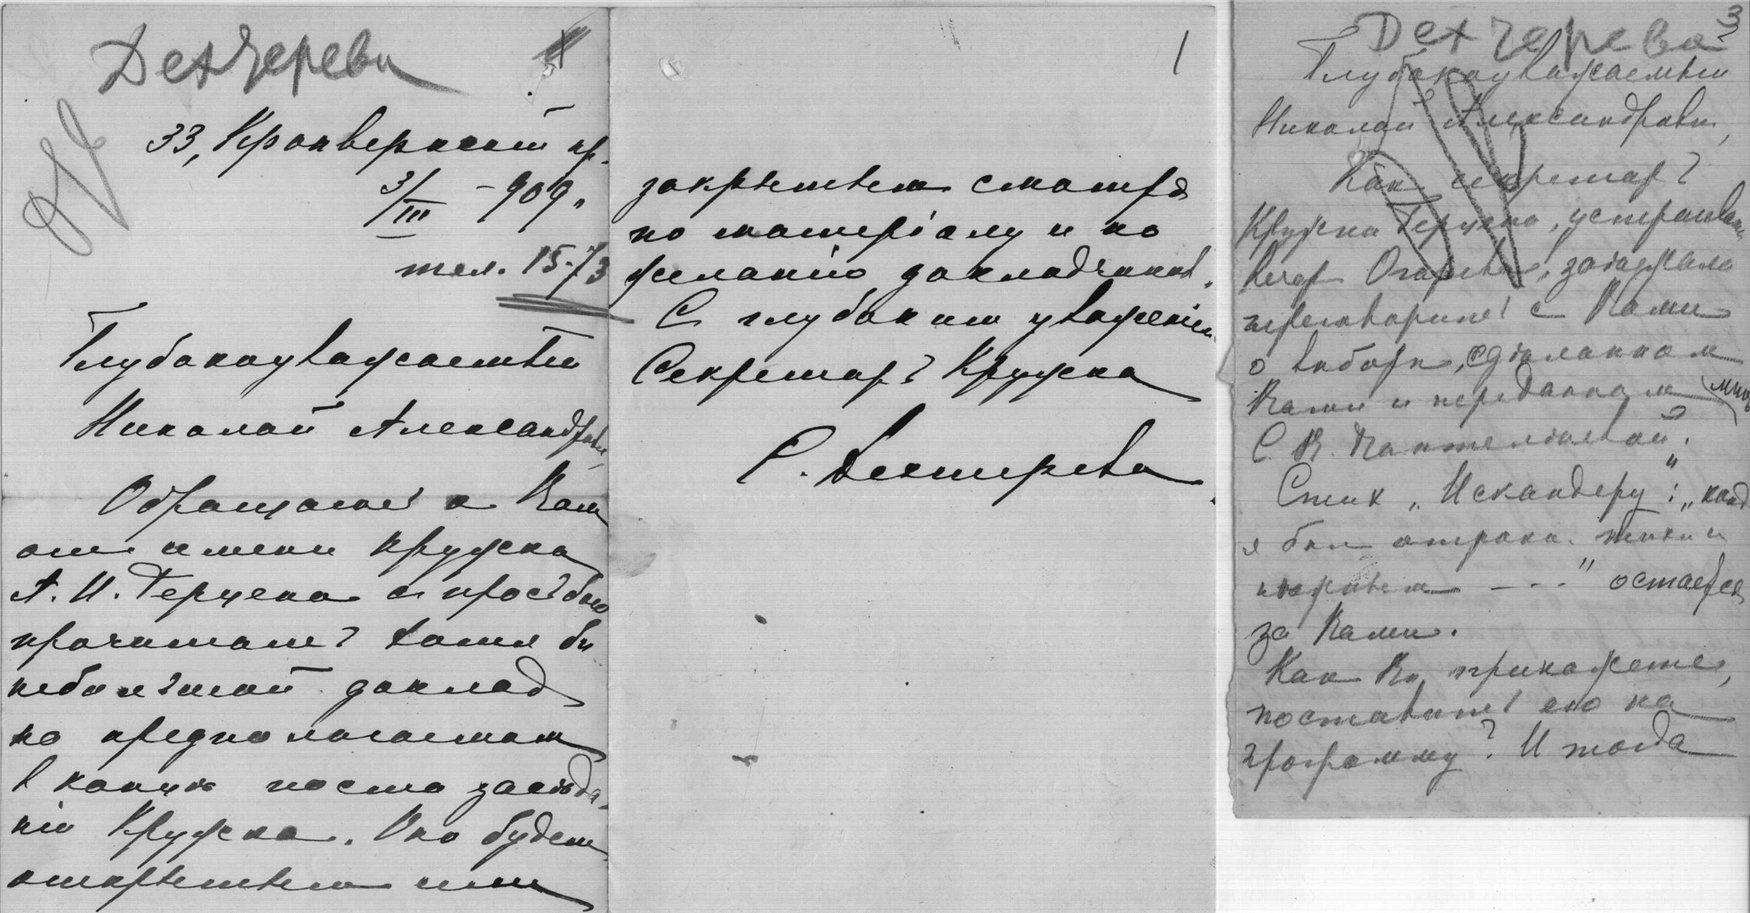 Дехтерева
33, Кронверкский пр.
3/III – 909 г.
тел. 15-73
Глубокоуважаемый
Николай Александрович,
Обращаюсь к Вам
от имени кружка
А. И. Герцена с просьбою
прочитать хотя бы
небольшой доклад
на предполагаемом
в конце поста заседа-
нии Кружка. Оно будет
открытым или
1
закрытым смотря
по матеріалу и по
желанію докладчиков.
С глубоким уваженіем
Секретарь Кружка
С. Дехтерева
3
Дехтерева
Глубокоуважаемый
Николай Александрович,
Как секретарь
Кружка Герцена, устраивающ.
вечер Огарева, заезжала
переговорить с Вами
о выборе, сделанном
Вами и переданном мне
С. В. Пантелеевой.
Стих „Искандеру“: „когда
я был отроком тихим и
нежным – – -“ остается
за Вами.
Как Вы прикажете,
поставить его на
программу? И тогда